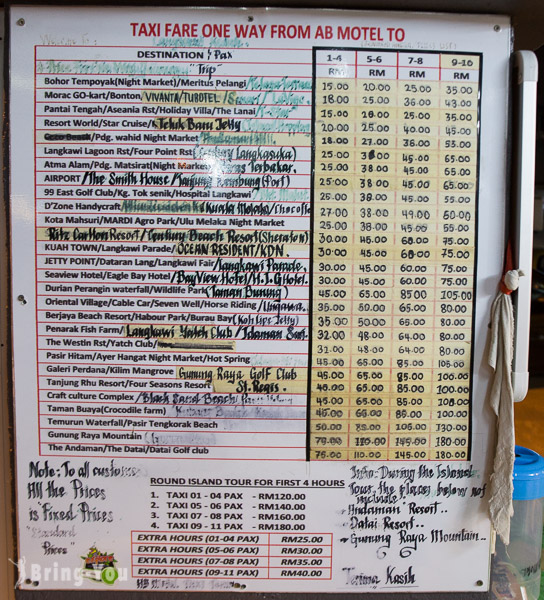 TAXI FARE ONE WAY FROM AB MOTEL TO
DESTINATION / Pax 1-4 5-6 7-8 9-10
"Trip" RM RM RM RM
Bohor Tempoyak(Night Market)/Meritus Pelangi/ 15.00 20.00 25.00 35.00
Morac GO-kart/Bonton VIVANTA/TUBOTEL/ 18.00 25.00 36.00 43.00
Pantai Tengah/Aseania Rst/Holiday Villa/The Lanai 15.00 20.00 25.00 35.00
Resort World/Star Cruise/Teluk Baru Jetty 20.00 25.00 40.00 45.00
/Pdg. wahid Night Market 18.00 27.00 36.00 53.00
Langkawi Lagoon Rst/Four Point Rst Langkasuka) 25.00 45.00 65.00
Atma Alam/Pdg. Matsirat(Night Market) Terbakar. 25.00 38.00 45.00 65.00
AIRPORT/The Smith House/Tanjung (Port) 25.00 38.00 45.00 65.00
99 East Golf Club/Kg. Tok senik/Hospital Langkawi 25.00 38.00 45.00
D'Zone Handycraft/ Kuala Melaka/ 27.00 38.00 49.00 60.00
Kota Mahsuri/MARDI Agro Park/Ulu Melaka Night Market 25.00 38.00 45.00 55.00
Ritz Carlton Resort/Century Beach Resort(Sheraton) 30.00 45.00 60.00 75.00
KUAH TOWN/Langkawi Parade/OCEAN RESIDENT/KDN. 30.00 45.00 60.00 75.00
JETTY POINT/Dataran Lang/Langkawi Fair/Langkawi Parade. 30.00 45.00 60.00 75.00
Seaview Hotel/Eagle Bay Hotel/BayView Hotel/H.I.G Hotel. 30.00 45.00 60.00 75.00
Durian Perangin waterfall/Wildlife Park(Taman Burung) 45.00 65.00 85.00 105.00
Oriental Village/Cable Car/Seven Well/Horse Riding/ 35.00 50.00 65.00 80.00
Berjaya Beach Resort/Habour Park/Burau Bay(Koh Lipe Jetty) 35.00 50.00 65.00 80.00
Penarak Fish Farm/Langkawi Yatch Club/ 32.00 48.00 64.00 80.00
The Westin Rst/Yatch Club/ 32.00 48.00 64.00 80.00
Pasir Hitam/Ayer Hangat Night Market/Hot Spring 65.00 85.00 105.00
Galeri Perdana/Kilim Mangrove Gunung Raya Golf Club 45.00 65.00 85.00 100.00
Tanjung Rhu Resort/Four Seasons Resort St. Regis. 40.00 65.00 85.00 100.00
Craft culture Complex/Black Sand Beach/ 45.00 65.00 85.00 100.00
Taman Buaya(Crocodile farm) 65.00 85.00 100.00
Temurun Waterfall/Pasir Tengkorak Beach 105.00 130.00
Gunung Raya Mountain 145.00 180.00
The Andaman/The Datai/Datai Golf club 75.00 110.00 145.00 180.00
Note: To all customers
All the Prices
is Fixed Prices
"Standard
Prices"
ROUND ISLAND TOUR FOR FIRST 4 HOURS
1. TAXI 01 - 04 PAX - RM120.00
2. TAXI 05 - 06 PAX - RM140.00
3. TAXI 07 - 08 PAX - RM160.00
4. TAXI 09 - 11 PAX - RM180.00
EXTRA HOURS (01-04 PAX) RM25.00
EXTRA HOURS (05-06 PAX) RM30.00
EXTRA HOURS (07-08 PAX) RM35.00
EXTRA HOURS (09-11 PAX) RM40.00
Info: During the Island
Tour, the places below not
include!
Andaman Resort..
Datai Resort..
Gunung Raya Mountain..
Terima Kasih
Bring You